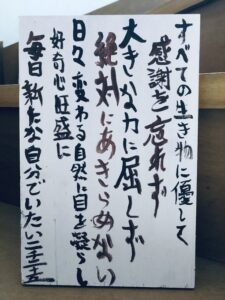 すべての生き物に優しく
感謝を忘れず
大きな力に屈しず
絶対にあきらめない
日々変わる自然に目を凝らし
好奇心旺盛に
毎日新たな自分でいたい